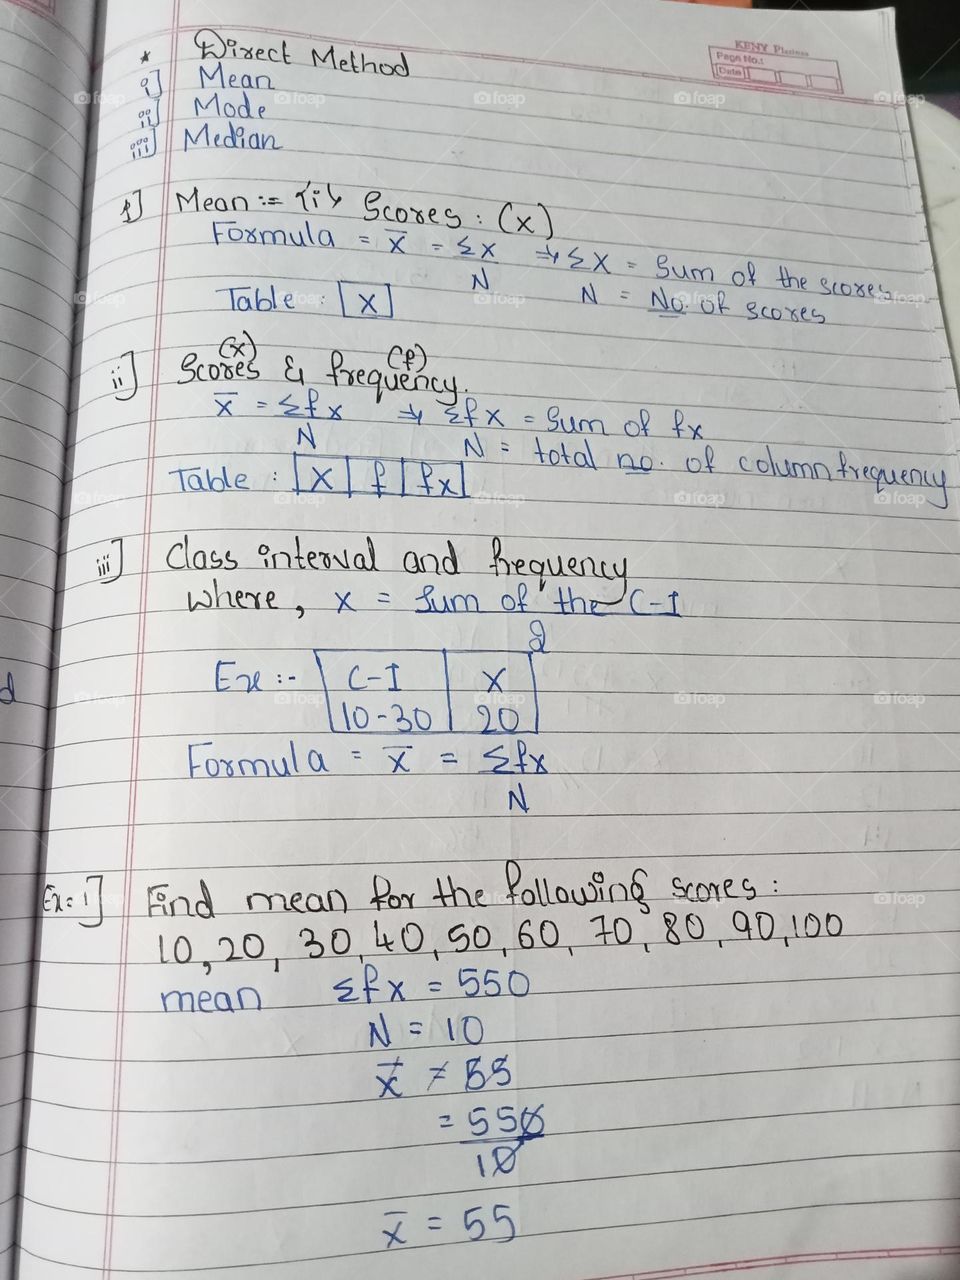 KENY Platinum
Page No.:
Date
* Direct Method
i] Mean
ii] Mode
iii] Median
1] Mean := {i} Scores : (x)
Formula = x̄ = Σx / N ⇒ Σx = Sum of the scores
N = No. of scores
Table : [x]
ii] Scores (x) & frequency (f).
x̄ = Σfx / N ⇒ Σfx = Sum of fx
N = total no. of column frequency
Table : | x | f | fx |
iii] Class interval and frequency
where, x = Sum of the C-I / 2
Ex :- | C-I | x |
| 10-30 | 20 |
Formula = x̄ = Σfx / N
Ex:1] Find mean for the following scores :
10, 20, 30, 40, 50, 60, 70, 80, 90, 100
mean Σfx = 550
N = 10
x̄ = 55
= 550 / 10
x̄ = 55
d
foap